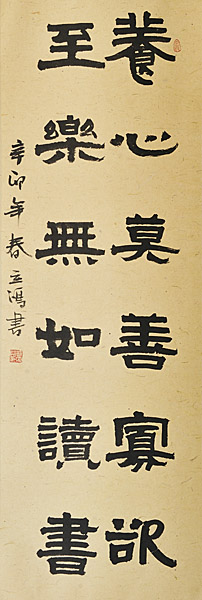 養心莫善寡欲
至樂無如讀書
辛卯年春立鴻書